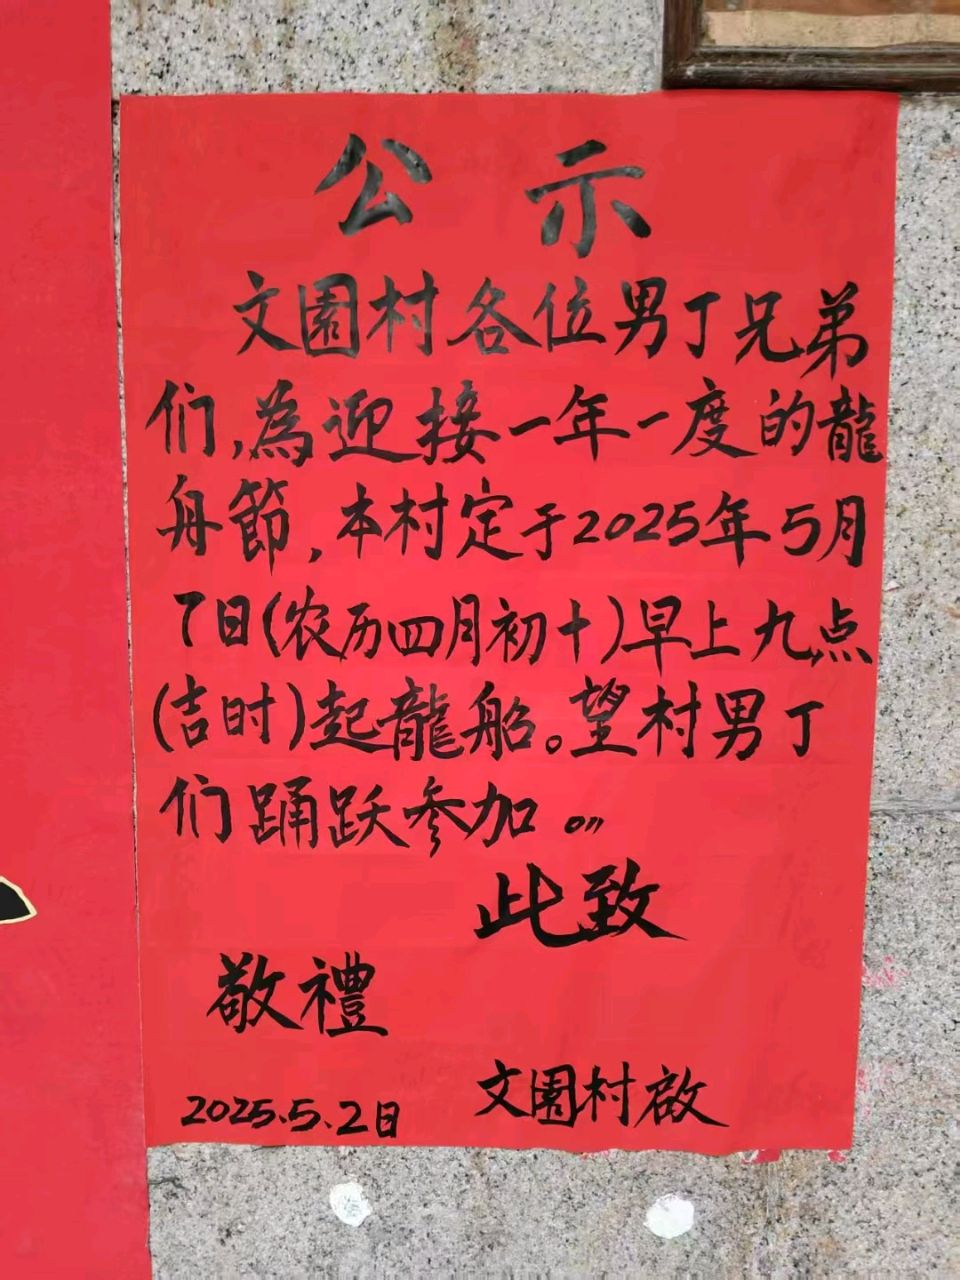 公示
文園村各位男丁兄弟
们,為迎接一年一度的龍
舟節,本村定于2025年5月
7日(农历四月初十)早上九点
(吉时)起龍船。望村男丁
们踊跃参加。
此致
敬禮
文園村啟
2025.5.2日